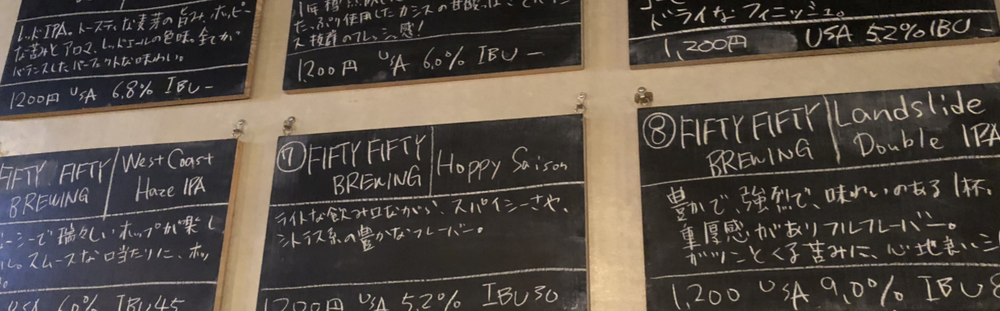 レッドIPA。トースティな麦芽の旨み、ホッピー
な苦みとアロマ、レッドエールの色味。全てが
バランスしたパーフェクトな味わい。
1200円 USA 6.8% IBU-
たっぷり使用したカシスの甘酸
ス抜着のフレッシュ感!
1,200円 USA 6.0% IBU-
ドライなフィニッシュ。
1,200円 USA 5.2% IBU-
FIFTY FIFTY
BREWING
West Coast
Haze IPA
ーシーで瑞々しいホップが楽し
ル。スムースな口当たりに、ホッ
。
USA 6.0% IBU45
⑦ FIFTY FIFTY
BREWING
Hoppy Saison
ライトな飲み口ながら、スパイシーさや、
シトラス系の豊かなフレーバー。
1200円 USA 5.2% IBU30
⑧ FIFTY FIFTY
BREWING
Landslide
Double IPA
豊かで、強烈で、味わいのある1杯。
重厚感がありフルフレーバー。
ガツンとくる苦みに、心地良い
1,200 USA 9.0% IBU